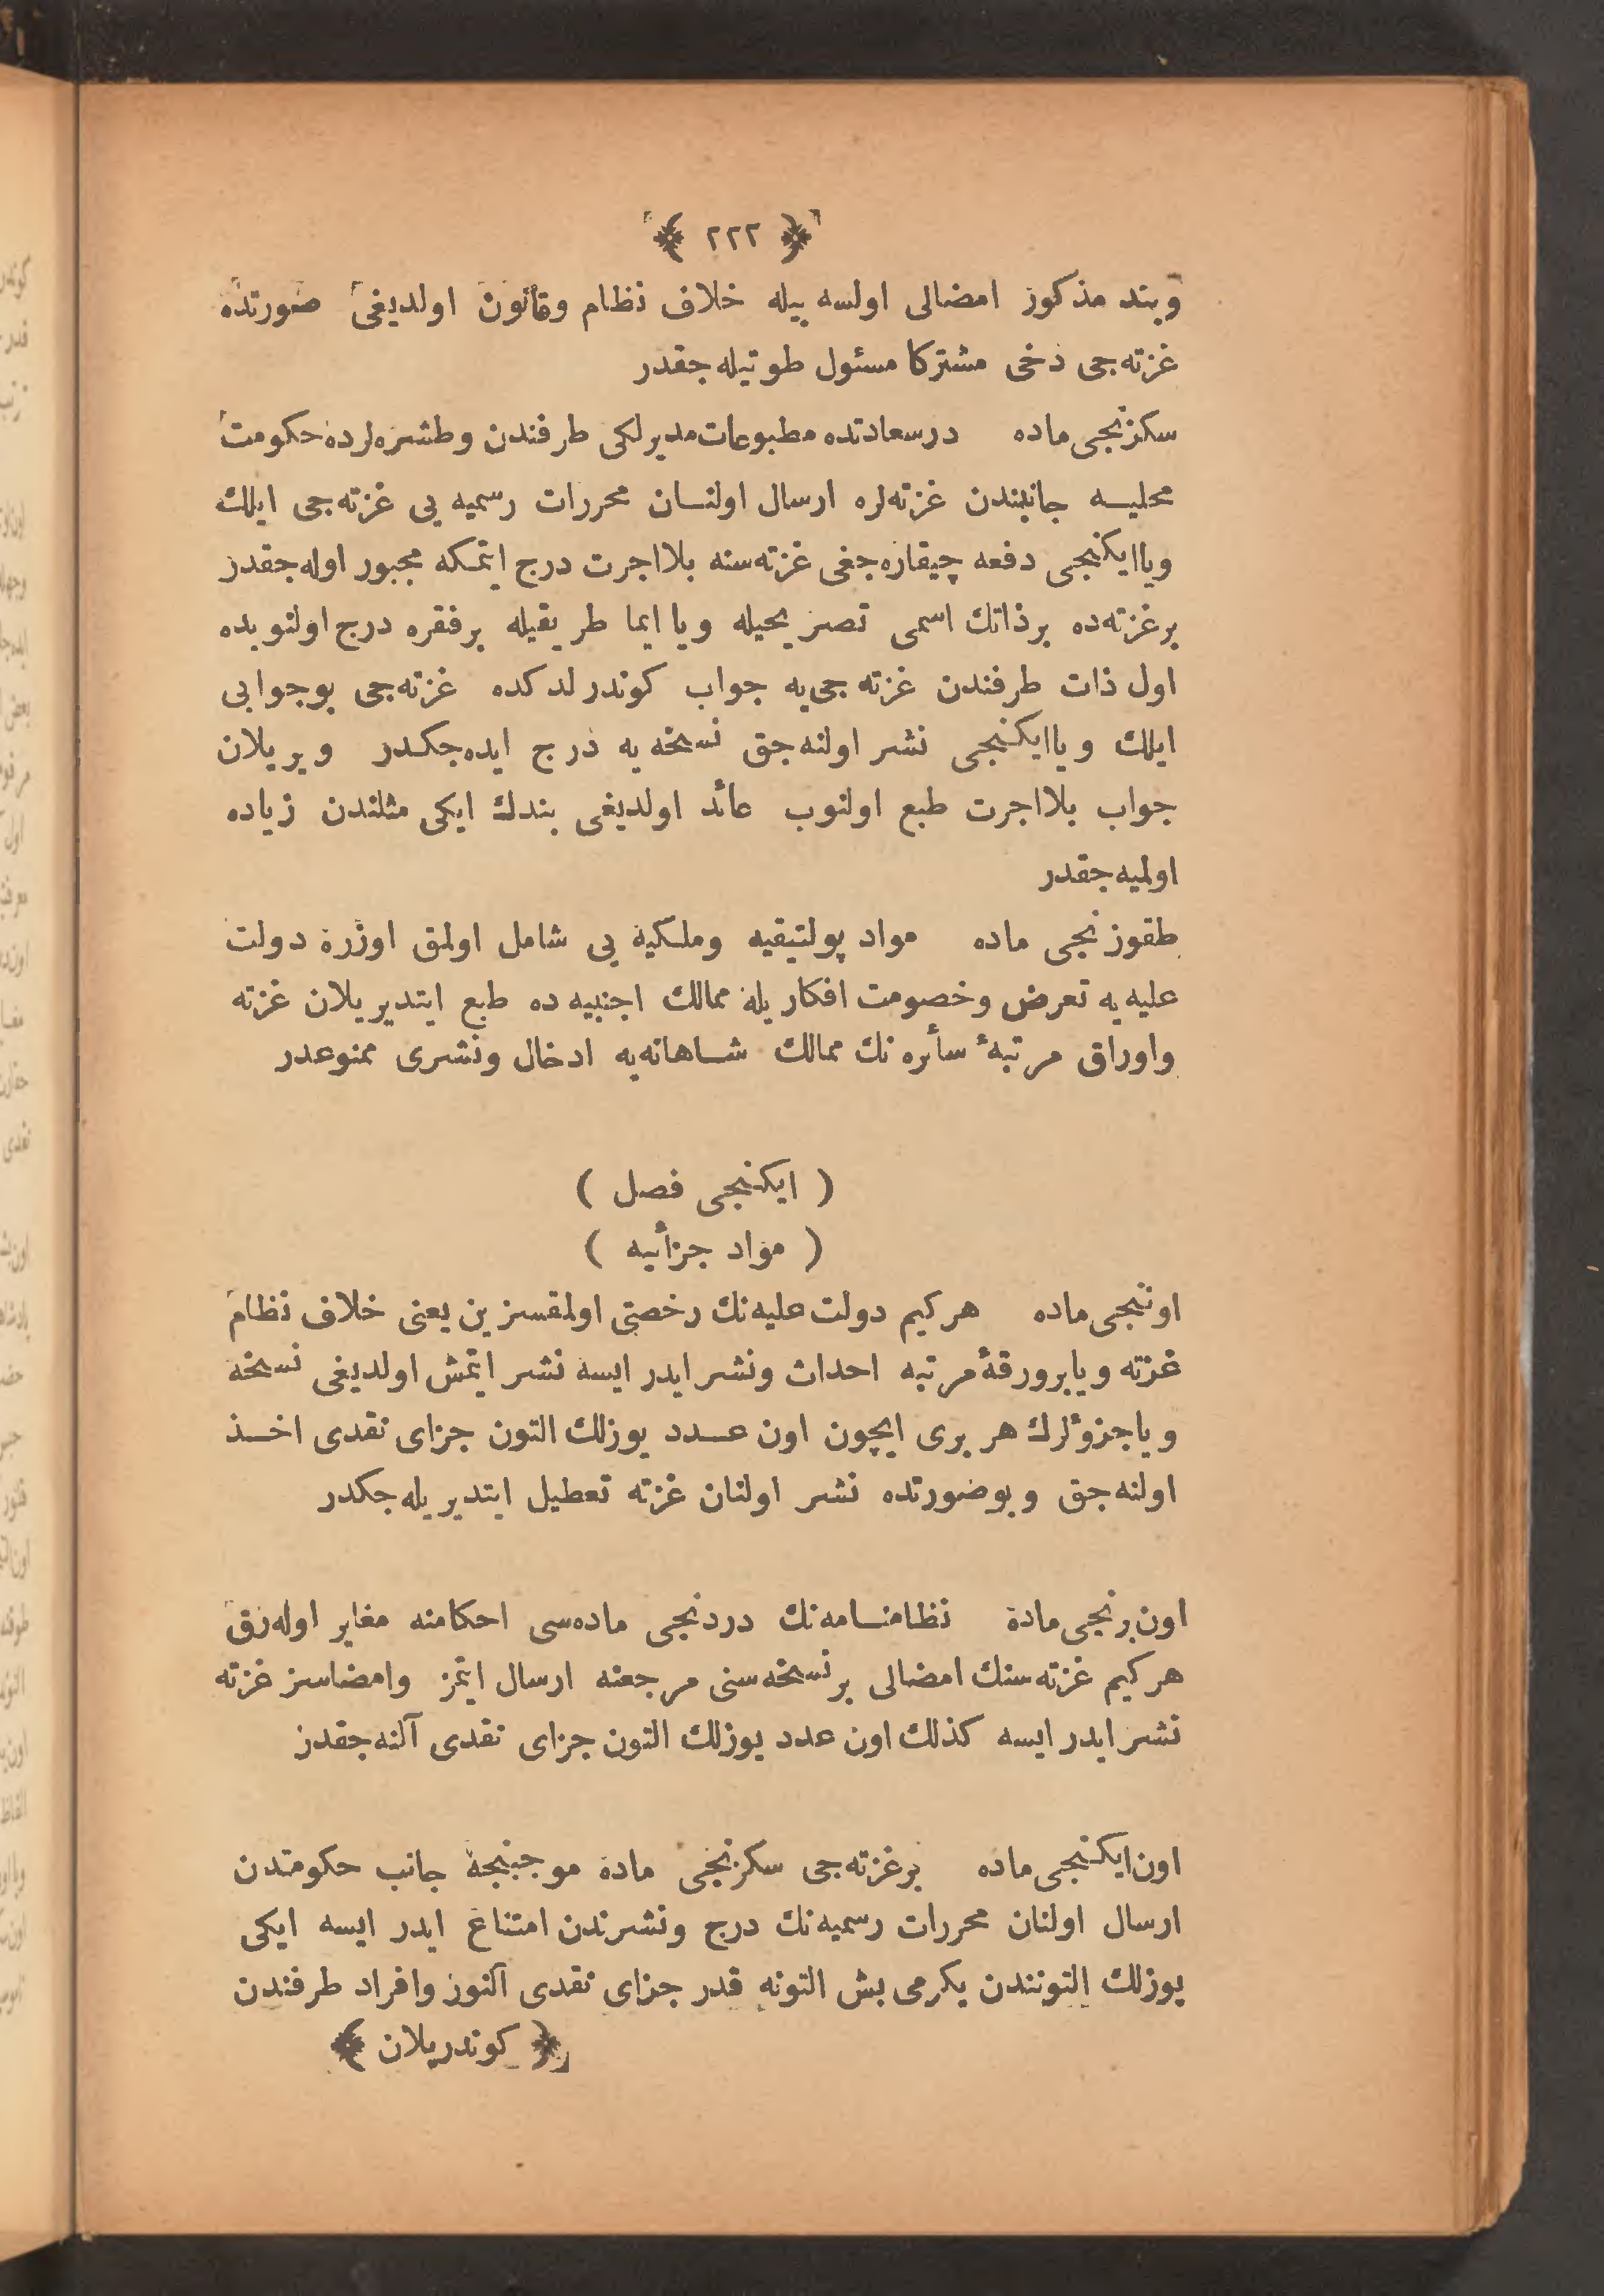 ﴿ ٢٢٢ ﴾
وبند مذكور امضالى اولسه بيله خلاف نظام وقانون اولديغى صورتده
غزته‌جى دخى مشتركا مسئول طوتيله‌جقدر
سكزنجى ماده درسعادتده مطبوعات مديرلكى طرفندن وطشره‌لرده حكومت
محليــه جانبندن غزته‌لره ارسال اولنــان محررات رسميه يى غزته‌جى ايلك
ويا ايكنجى دفعه چيقاره‌جغى غزته‌سنه بلااجرت درج ايتمكه مجبور اوله‌جقدر
برغزته‌ده برذاتك اسمى تصريحيله ويا ايما طريقيله برفقره درج اولنوبده
اول ذات طرفندن غزته‌جى‌يه جواب كوندرلدكده غزته‌جى بوجوابى
ايلك ويا ايكنجى نشر اولنه‌جق نسخه يه درج ايده‌جكـدر ويريلان
جواب بلااجرت طبع اولنوب عائد اولديغى بندك ايكى مثلندن زياده
اولميه‌جقدر
طقوزنجى ماده مواد پولتيقيه وملكيه يى شامل اولمق اوزره دولت
عليه يه تعرض وخصومت افكاريله ممالك اجنبيه ده طبع ايتديريلان غزته
واوراق مرتبۀ سائره نك ممالك شــاهانه‌يه ادخال ونشرى ممنوعدر
( ايكنجى فصل )
( مواد جزائيه )
اوننجى ماده هركيم دولت عليه‌نك رخصتى اولمقسزين يعنى خلاف نظام
غزته ويا برورقۀ مرتبه احداث ونشر ايدر ايسه نشر ايتمش اولديغى نسخه
ويا جزؤلرك هر برى ايچون اون عــدد يوزلك التون جزاى نقدى اخــذ
اولنه‌جق وبوصورتده نشر اولنان غزته تعطيل ايتديريله‌جكدر
اون برنجى ماده نظامنــامه‌نك دردنجى ماده‌سى احكامنه مغاير اوله‌رق
هركيم غزته‌سنك امضالى برنسخه‌سنى مرجعنه ارسال ايتمز وامضاسز غزته
نشر ايدر ايسه كذلك اون عدد يوزلك التون جزاى نقدى آلنه‌جقدر
اون ايكنجى ماده برغزته‌جى سكزنجى ماده موجبنجه جانب حكومتدن
ارسال اولنان محررات رسميه‌نك درج ونشرندن امتناع ايدر ايسه ايكى
يوزلك التونندن يكرمى بش التونه قدر جزاى نقدى آلنور وافراد طرفندن
﴿ كوندريلان ﴾